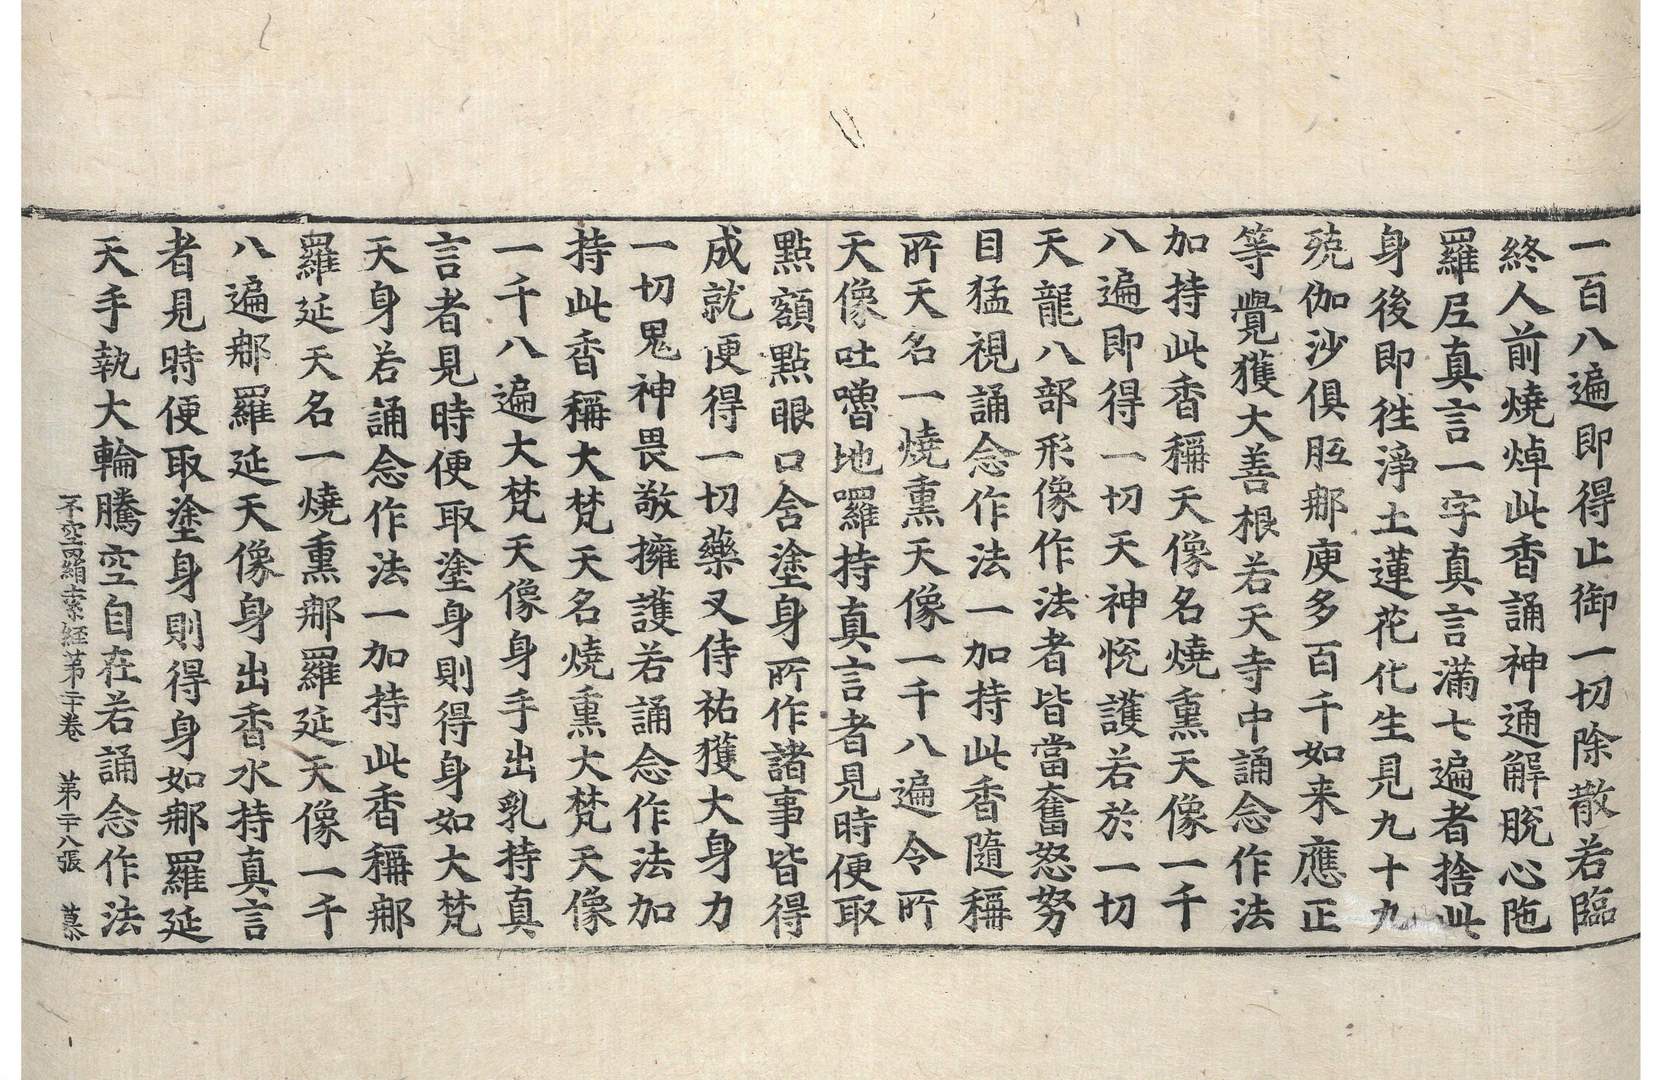 一百八遍即得止御一切除散若臨
終人前燒焯此香誦神通解脫心陁
羅尼真言一字真言滿七遍者捨此
身後即往淨土蓮花化生見九十九
殑伽沙俱胝那庾多百千如来應正
等覺獲大善根若天寺中誦念作法
加持此香稱天像名燒熏天像一千
八遍即得一切天神恱護若於一切
天龍八部形像作法者皆當奮怒努
目猛視誦念作法一加持此香隨稱
所天名一燒熏天像一千八遍令所
天像吐嚕地囉持真言者見時便取
點額點眼口舍塗身所作諸事皆得
成就便得一切藥叉侍祐獲大身力
一切鬼神畏敬擁護若誦念作法加
持此香稱大梵天名燒熏大梵天像
一千八遍大梵天像身手出乳持真
言者見時便取塗身則得身如大梵
天身若誦念作法一加持此香稱那
羅延天名一燒熏那羅延天像一千
八遍那羅延天像身出香水持真言
者見時便取塗身則得身如那羅延
天手執大輪騰空自在若誦念作法
不空罥索経第二十卷　第二十八張　慕